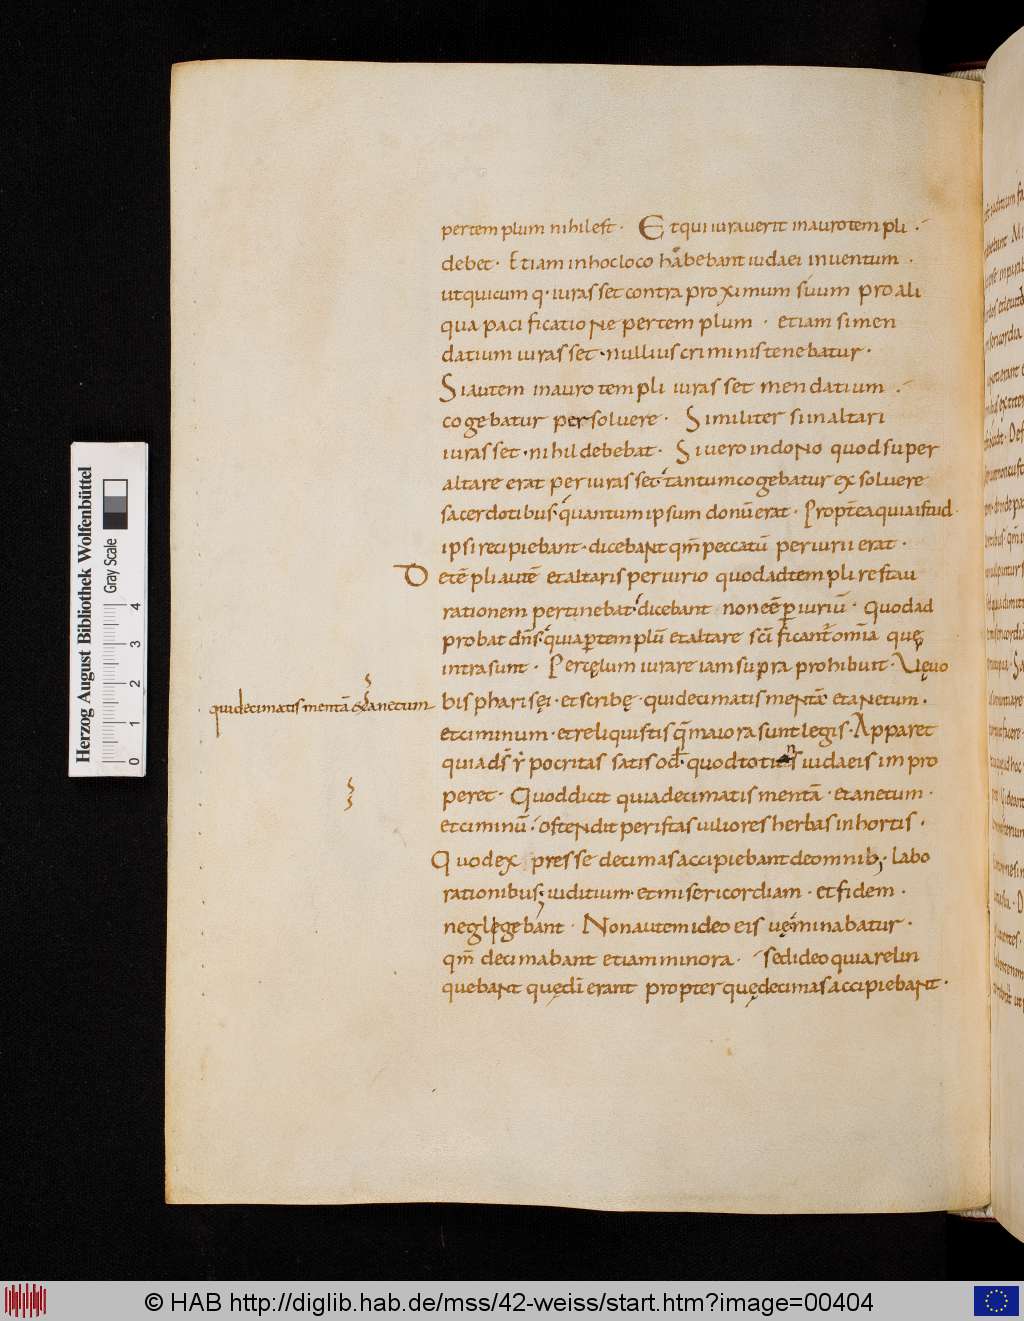 per templum nihil est · Et qui iuraverit in auro templi ·
debet · Etiam in hoc loco habebant iudaei inventum ·
ut quicumq · iurasset contra proximum suum pro ali
qua pacificatione per templum · etiam si men
datium iurasset · nullius criminis tenebatur ·
Si autem in auro templi iurasset mendatium ·
cogebatur persolvere · Similiter si in altari
iurasset · nihil debebat · Si vero in dono quod super
altare erat periurasset · tantum cogebatur exsolvere
sacerdotibus · quantum ipsum donū erat · Propterea quia istud
ipsi recipiebant · dicebant qm̄ peccatū periurii erat ·
De tēpli autē et altaris periurio quod ad templi restau
rationem pertinebat · dicebant non eē piuriū · Quod ad
probat dn̄s · quia p templū et altare sc̄ificant omīa quę
intra sunt · Per cęlum iurare iam supra prohibuit · Vę vo
quidecimatis mentā & anetum
bis pharisęi · et scribę · qui decimatis mentā et anetum ·
et ciminum · et reliquistis q̄ maiora sunt legis · Apparet
quia ds̄ ypocritas satis od · quod totiens iudaeis impro
peret · Quod dicit quia decimatis mentā · et anetum ·
et ciminū · ostendit per istas viliores herbas in hortis ·
Quod expresse decimas accipiebant de omnib; labo
rationibus; iuditium · et misericordiam · et fidem ·
neglegebant · Non autem ideo eis vę minabatur ·
qm̄ decimabant etiam minora · sed ideo quia relin
quebant quę dī erant propter quę decimas accipiebant ·
Herzog August Bibliothek Wolfenbüttel
Gray Scale
0 1 2 3 4
© HAB http://diglib.hab.de/mss/42-weiss/start.htm?image=00404